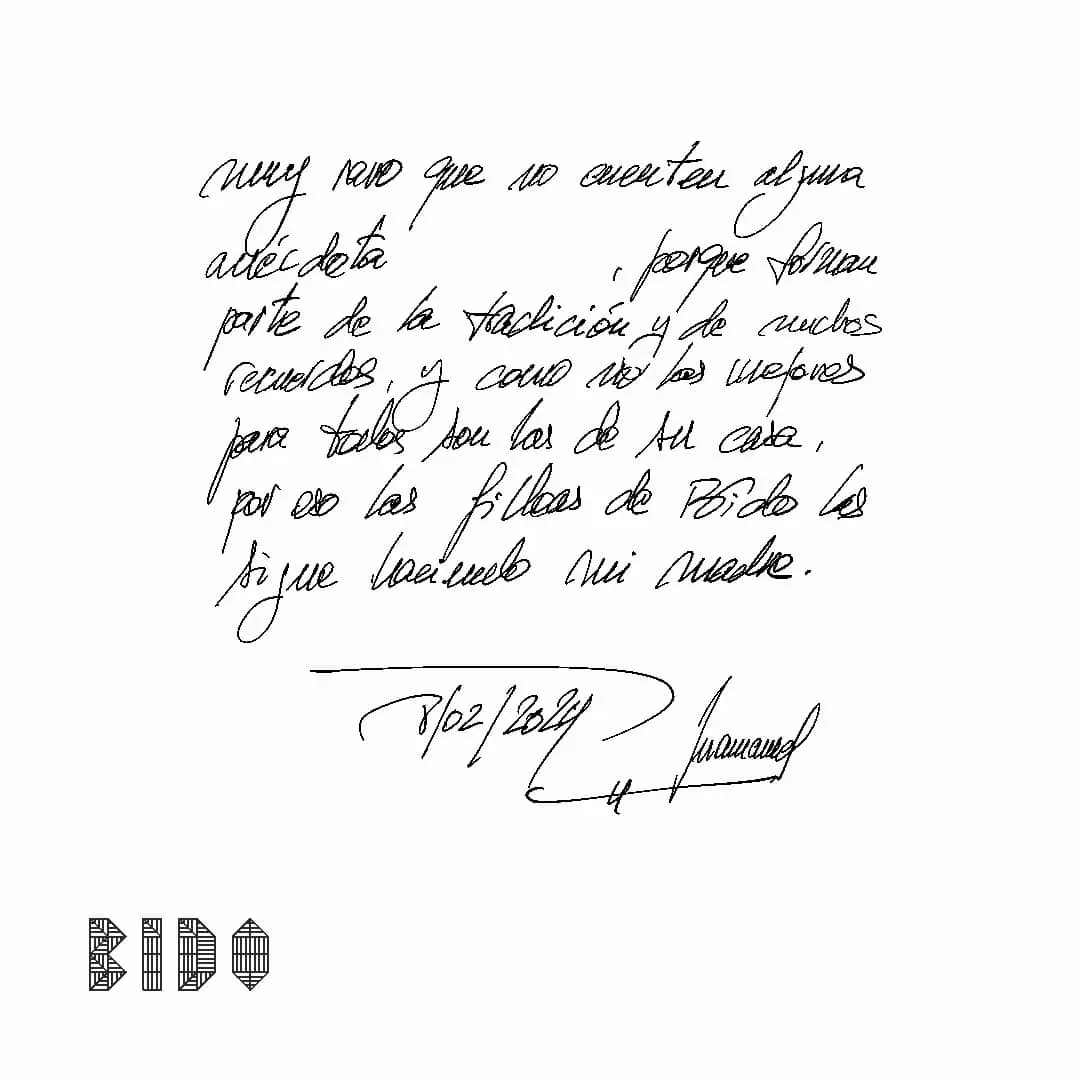 muy raro que no cuenten alguna
anécdota , porque forman
parte de la tradición y de muchos
recuerdos, y como no las mejores
para todos son las de su casa,
por eso las filloas de Bido las
sigue haciendo mi madre.
8/02/2024
Juamanuel
BIDO